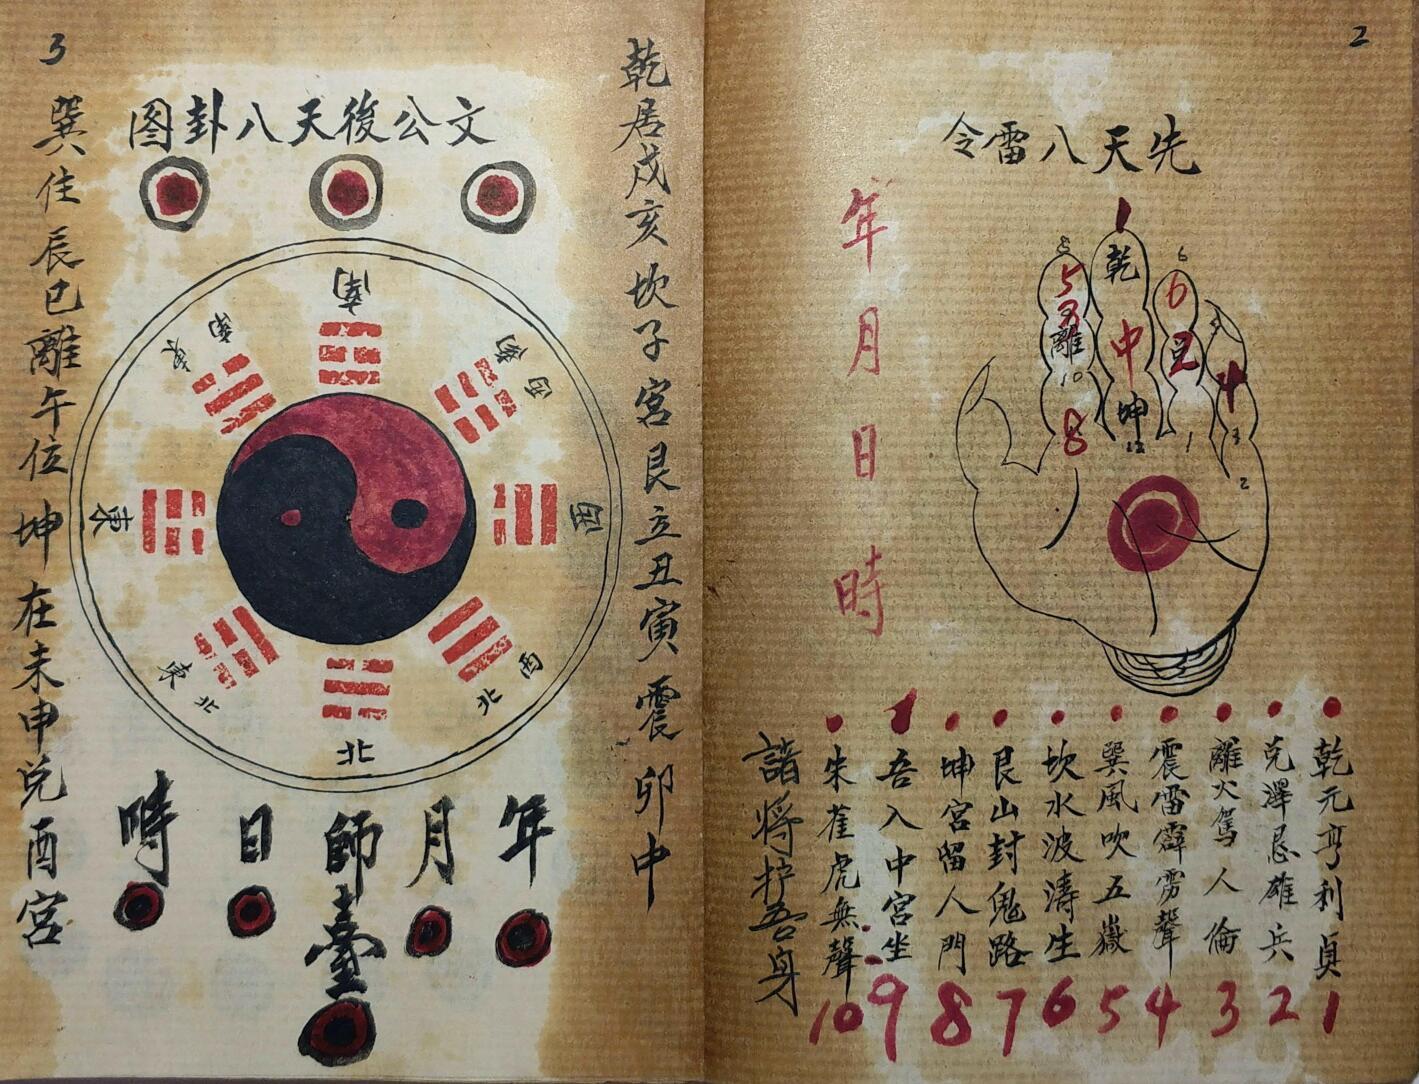 2
先天八雷令
年月日時
1
乾
中
坤
12
5
離
10
8
6
6
兑
1
4
3
2
乾元亨利貞 1
兑澤忌雄兵 2
離火駕人倫 3
震雷霹雳聲 4
巽風吹五嶽 5
坎水波濤生 6
艮山封鬼路 7
坤宮留人門 8
吾入中宮坐 9
朱雀虎無聲 10
諸将护吾身
3
文公後天八卦图
乾居戌亥坎子宮艮立丑寅震卯中
巽住辰巳離午位坤在未申兑酉宮
南
西南
西
西北
北
東北
東
東南
年
月
師臺
日
時